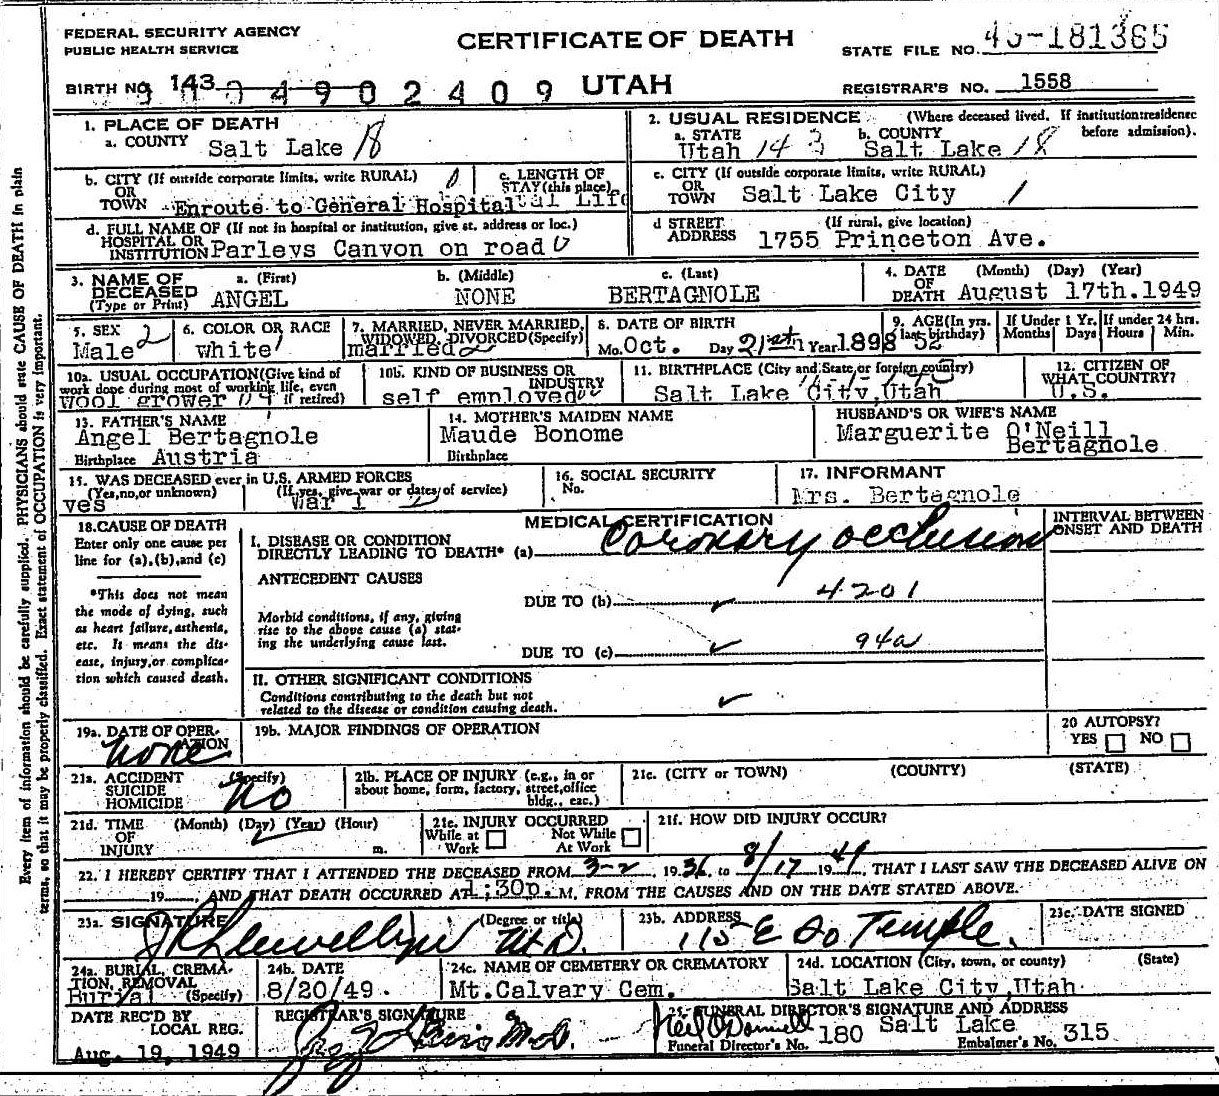 FEDERAL SECURITY AGENCY
PUBLIC HEALTH SERVICE
CERTIFICATE OF DEATH
STATE FILE NO. 181365
BIRTH NO. 143
4902409
UTAH
REGISTRAR'S NO. 1558
1. PLACE OF DEATH
a. COUNTY Salt Lake 18
2. USUAL RESIDENCE (Where deceased lived. If institution: residence before admission).
a. STATE Utah 143 b. COUNTY Salt Lake 18
b. CITY (If outside corporate limits, write RURAL)
OR
TOWN Enroute to General Hospital
c. LENGTH OF
STAY (this place) Life
c. CITY (If outside corporate limits, write RURAL)
OR
TOWN Salt Lake City 1
d. FULL NAME OF (If not in hospital or institution, give st. address or loc.)
HOSPITAL OR
INSTITUTION Parleys Canyon on road
d STREET (If rural, give location)
ADDRESS 1755 Princeton Ave.
3. NAME OF DECEASED (Type or Print)
a. (First) b. (Middle) c. (Last)
ANGEL NONE BERTAGNOLE
4. DATE OF DEATH (Month) (Day) (Year)
August 17th.1949
5. SEX 2
Male
6. COLOR OR RACE
white
7. MARRIED, NEVER MARRIED,
WIDOWED, DIVORCED (Specify)
married 2
8. DATE OF BIRTH
Mo. Oct. Day 21st Year 1898
9. AGE (In yrs. last birthday) 52
If Under 1 Yr. Months Days
If under 24 hrs. Hours Min.
10a. USUAL OCCUPATION (Give kind of
work done during most of working life, even
if retired)
wool grower
10b. KIND OF BUSINESS OR
INDUSTRY
self employed
11. BIRTHPLACE (City and State, or foreign country)
Salt Lake City, Utah
12. CITIZEN OF
WHAT COUNTRY?
U.S.
13. FATHER'S NAME
Angel Bertagnole
Birthplace Austria
14. MOTHER'S MAIDEN NAME
Maude Bonome
Birthplace
HUSBAND'S OR WIFE'S NAME
Marguerite O'Neill
Bertagnole
15. WAS DECEASED ever in U.S. ARMED FORCES
(Yes, no, or unknown) (If yes, give war or dates of service)
yes War 1
16. SOCIAL SECURITY
No.
17. INFORMANT
Mrs. Bertagnole
18. CAUSE OF DEATH
Enter only one cause per
line for (a), (b), and (c)
*This does not mean
the mode of dying, such
as heart failure, asthenia,
etc. It means the dis-
ease, injury, or complica-
tion which caused death.
MEDICAL CERTIFICATION
INTERVAL BETWEEN
ONSET AND DEATH
I. DISEASE OR CONDITION
DIRECTLY LEADING TO DEATH* (a) Coronary occlusion
ANTECEDENT CAUSES
DUE TO (b) 4201
Morbid conditions, if any, giving
rise to the above cause (a) stat-
ing the underlying cause last.
DUE TO (c) 94a
II. OTHER SIGNIFICANT CONDITIONS
Conditions contributing to the death but not
related to the disease or condition causing death.
19a. DATE OF OPER-
ATION
none
19b. MAJOR FINDINGS OF OPERATION
20 AUTOPSY?
YES NO
21a. ACCIDENT (Specify)
SUICIDE
HOMICIDE No
21b. PLACE OF INJURY (e.g., in or
about home, form, factory, street, office
bldg., eac.)
21c. (CITY or TOWN) (COUNTY) (STATE)
21d. TIME (Month) (Day) (Year) (Hour)
OF
INJURY m.
21e. INJURY OCCURRED
While at Work Not While At Work
21f. HOW DID INJURY OCCUR?
22. I HEREBY CERTIFY THAT I ATTENDED THE DECEASED FROM 3-2, 1936 to 8/17 1949, THAT I LAST SAW THE DECEASED ALIVE ON
19, AND THAT DEATH OCCURRED AT 1:30p. M, FROM THE CAUSES AND ON THE DATE STATED ABOVE.
23a. SIGNATURE (Degree or title)
J R Llewellyn M.D.
23b. ADDRESS
115 E So Temple.
23c. DATE SIGNED
24a. BURIAL, CREMA-
TION, REMOVAL
Burial (Specify)
24b. DATE
8/20/49.
24c. NAME OF CEMETERY OR CREMATORY
Mt.Calvary Cem.
24d. LOCATION (City, town, or county) (State)
Salt Lake City, Utah
DATE REC'D BY
LOCAL REG.
Aug. 19, 1949
REGISTRAR'S SIGNATURE
M.D.
25. FUNERAL DIRECTOR'S SIGNATURE AND ADDRESS
Neil O'Donnell 180 Salt Lake
Funeral Director's No. Embalmer's No. 315
Every item of information should be carefully supplied. PHYSICIANS should state CAUSE OF DEATH in plain
terms, so that it may be properly classified. Exact statement of OCCUPATION is very important.